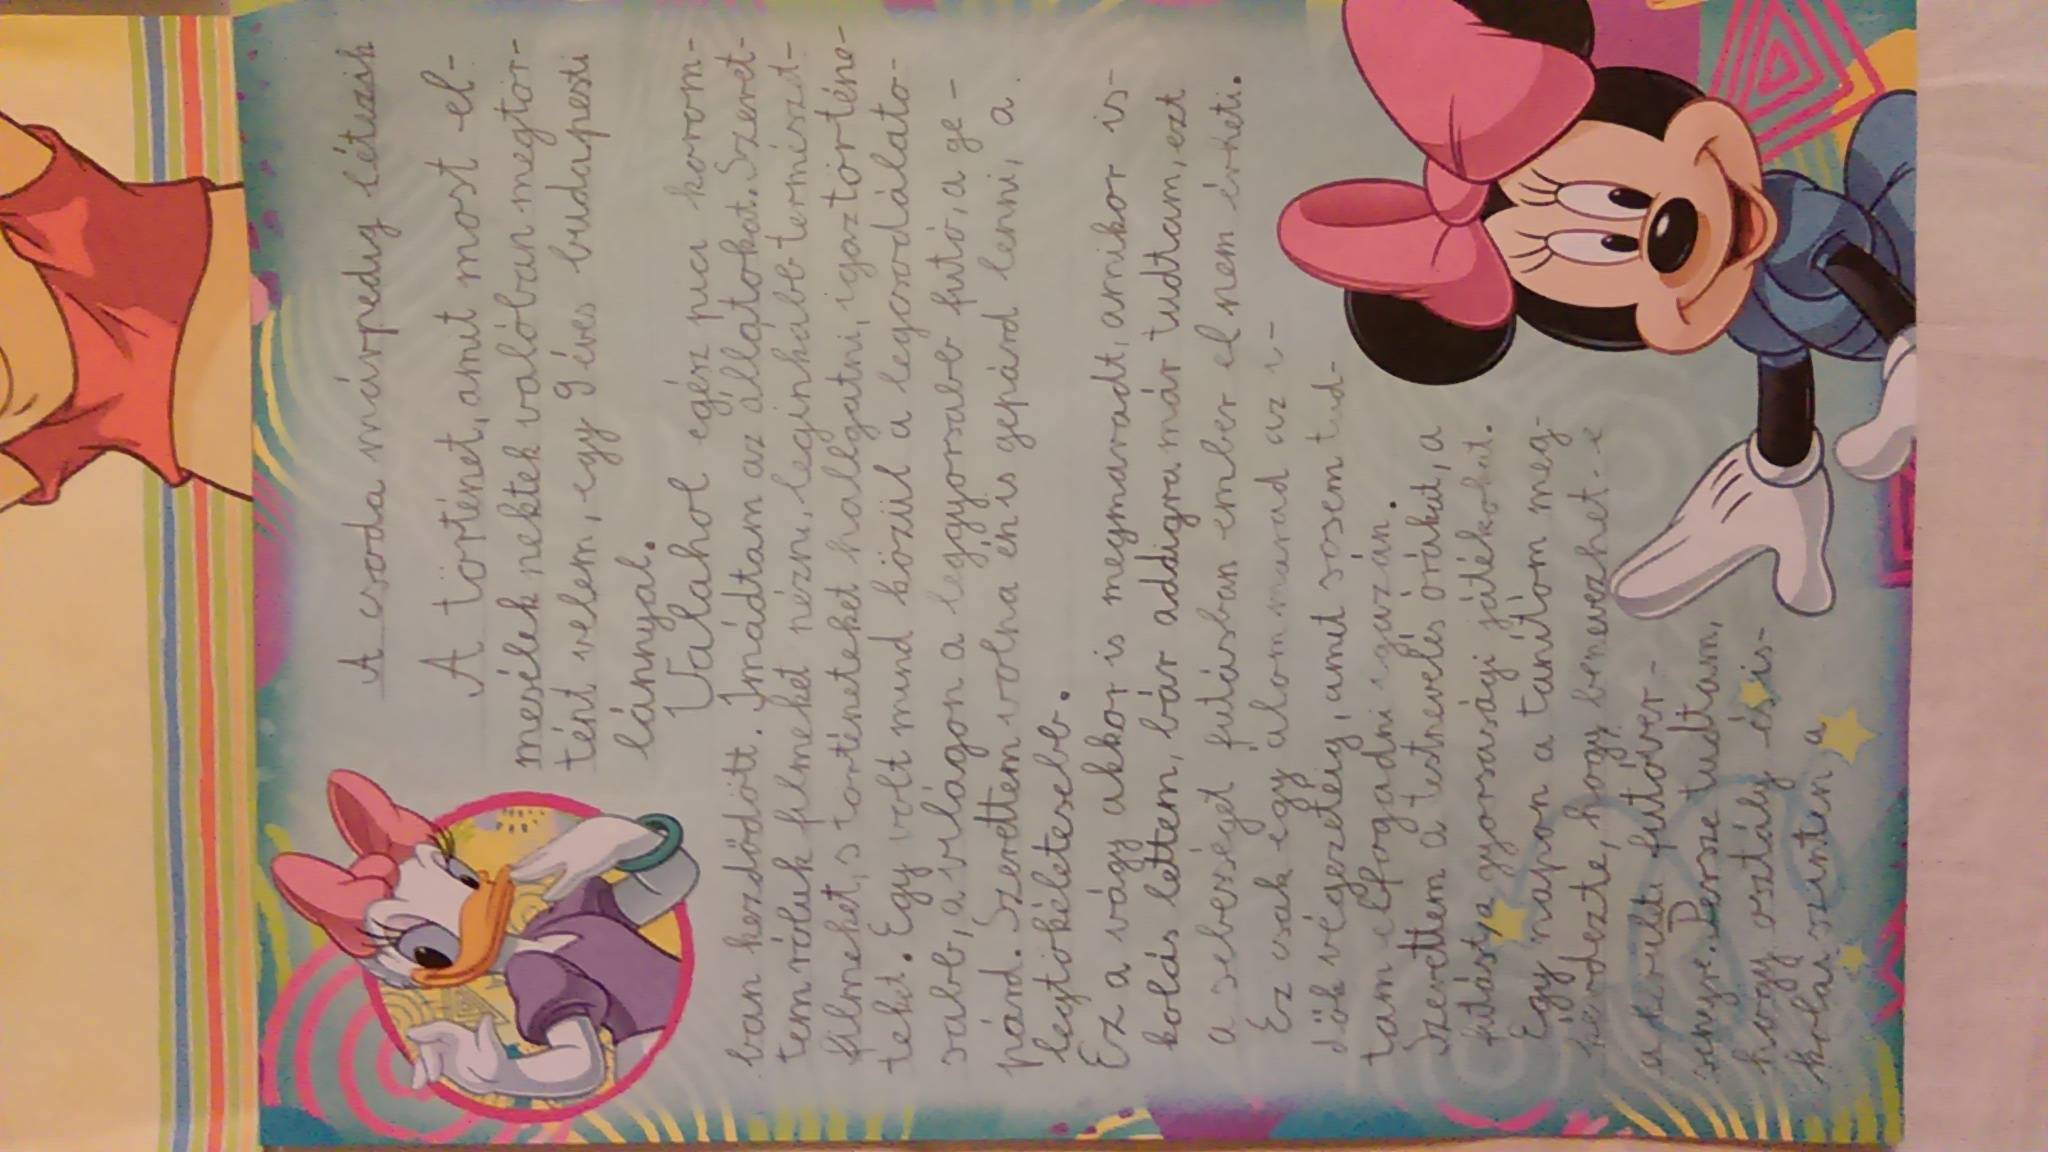 A csoda márpedig létezik
A történet, amit most el-
mesélek nektek valóban megtör-
tént velem, egy 9 éves budapesti
lánnyal.
Valahol egész pici korom-
ban kezdődött. Imádtam az állatokat. Szeret-
tem róluk filmeket nézni, leginkább természet-
filmeket, s történeteket hallgatni, igaz történe-
teket. Egy volt mind közül a legcsodálato-
sabb, a világon a leggyorsabb futó, a ge-
párd. Szerettem volna én is gepárd lenni, a
legtökéletesebb.
Ez a vágy akkor is megmaradt, amikor is-
kolás lettem, bár addigra már tudtam, ezt
a sebességet futásban ember el nem érheti.
Ez csak egy álom marad az i-
dők végezetéig, amit sosem tud-
tam elfogadni igazán.
Szerettem a testnevelés órákat, a
futást, a gyorsasági játékokat.
Egy napon a tanítóm meg-
kérdezte, hogy benevezhet-e
a kerületi futóver-
senyre. Persze tudtam,
hogy osztály és is-
kolai szinten a